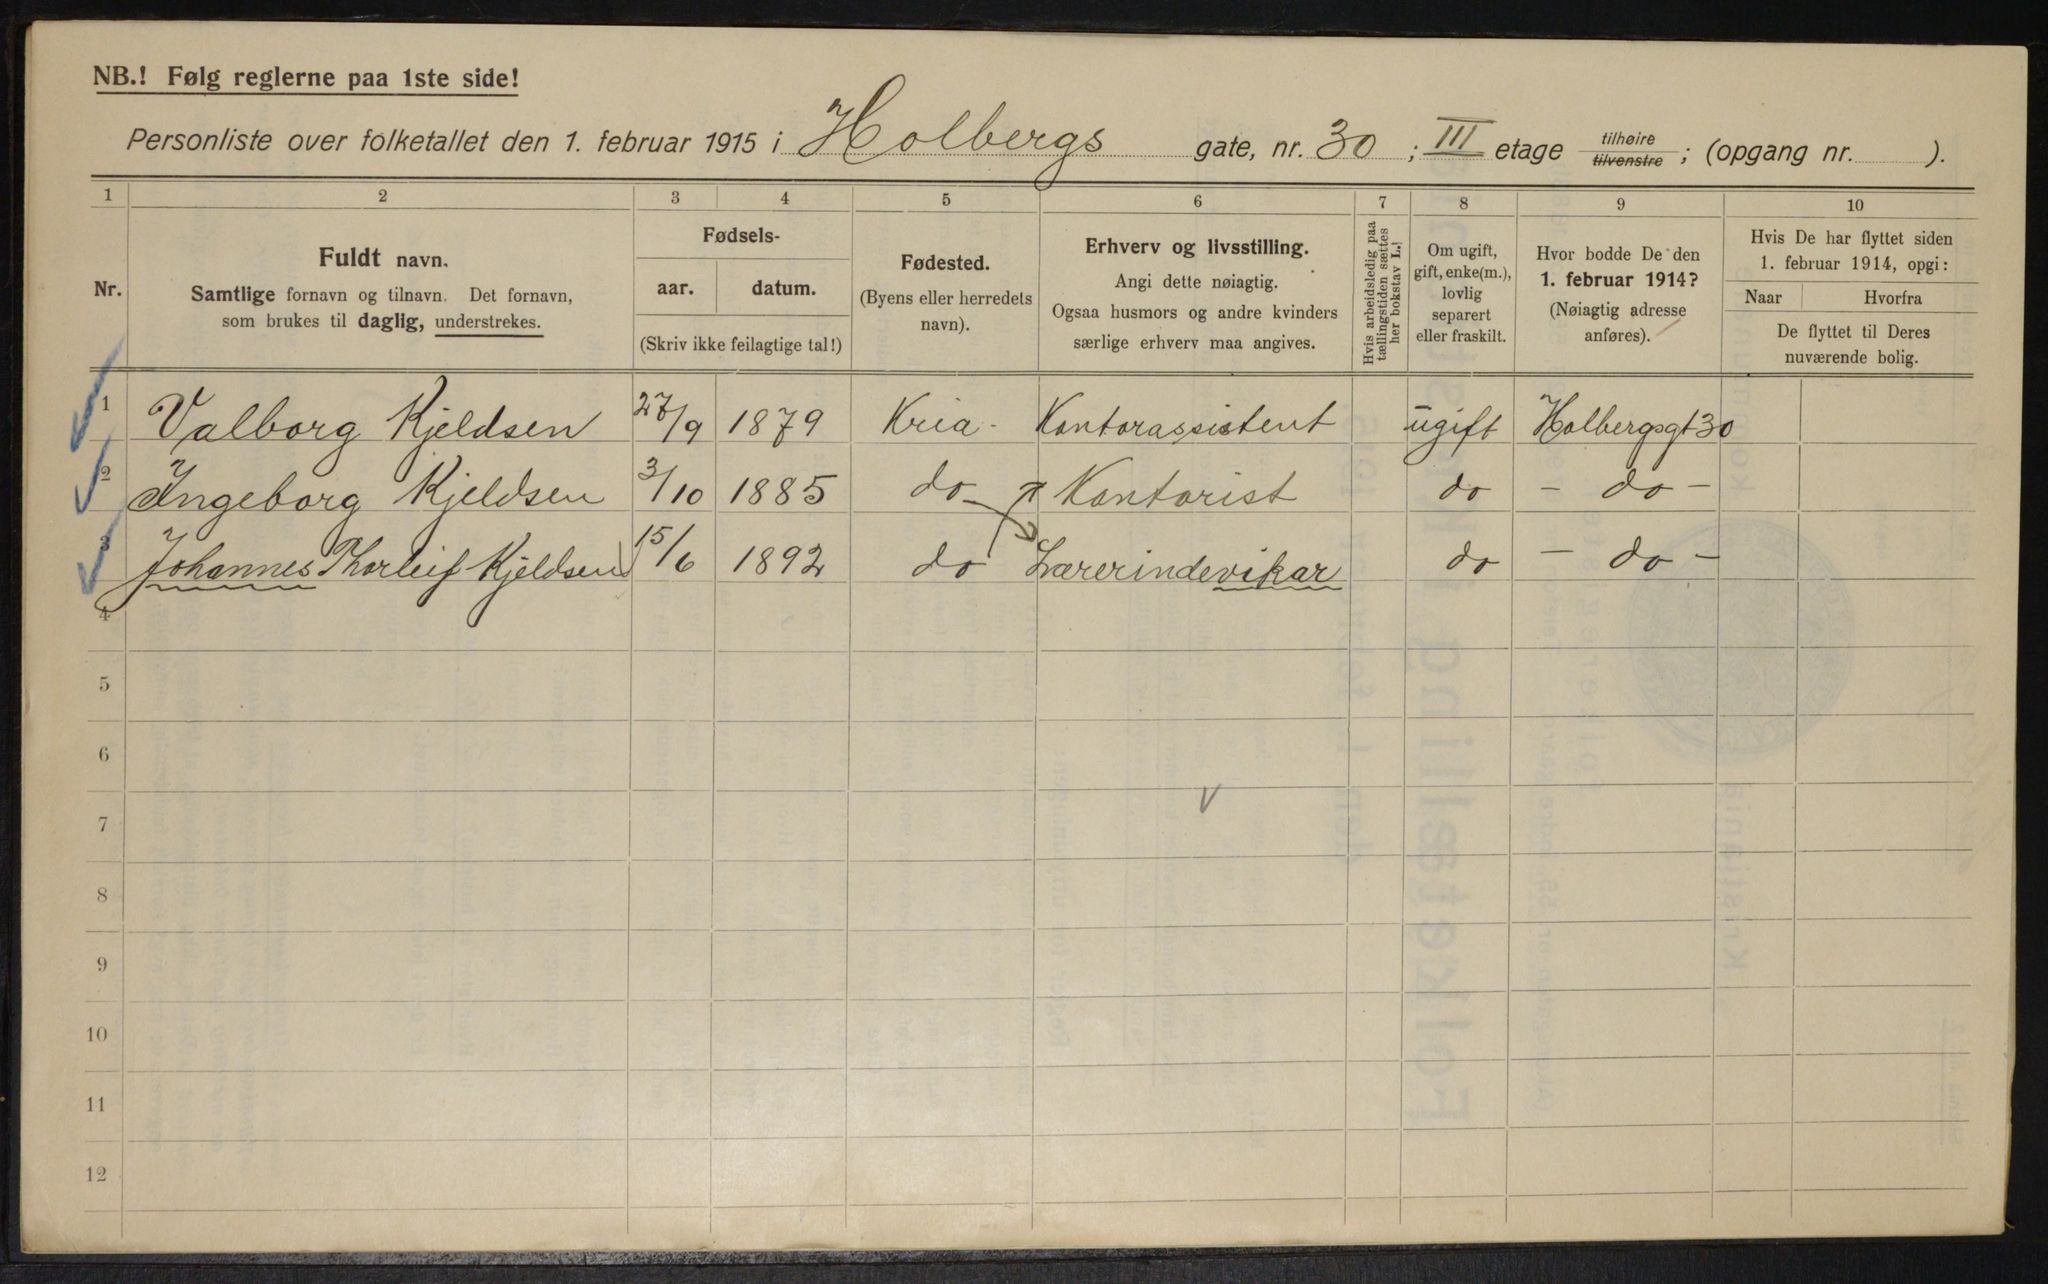 NB.! Følg reglerne paa 1ste side!
Personliste over folketallet den 1. februar 1915 i Holbergs gate, nr. 30 ; III etage tilhøire tilvenstre ; (opgang nr. ).
1 2 3 4 5 6 7 8 9 10
Nr.
Fuldt navn.
Samtlige fornavn og tilnavn. Det fornavn,
som brukes til daglig, understrekes.
Fødsels-
aar. datum.
(Skriv ikke feilagtige tal!)
Fødested.
(Byens eller herredets
navn).
Erhverv og livsstilling.
Angi dette nøiagtig.
Ogsaa husmors og andre kvinders
særlige erhverv maa angives.
Hvis arbeidsledig paa
tællingstiden sættes
her bokstav L.!
Om ugift,
gift, enke(m.),
lovlig
separert
eller fraskilt.
Hvor bodde De den
1. februar 1914?
(Nøiagtig adresse
anføres).
Hvis De har flyttet siden
1. februar 1914, opgi:
Naar Hvorfra
De flyttet til Deres
nuværende bolig.
1 Valborg Kjeldsen 27/9 1879 Kria. Kontorassistent ugift Holbergsgt 30
2 Ingeborg Kjeldsen 3/10 1885 do Kontorist do - do -
3 Johannes Thorleif Kjeldsen 15/6 1892 do Lærerindevikar do - do -
4
5
6
7
8
9
10
11
12